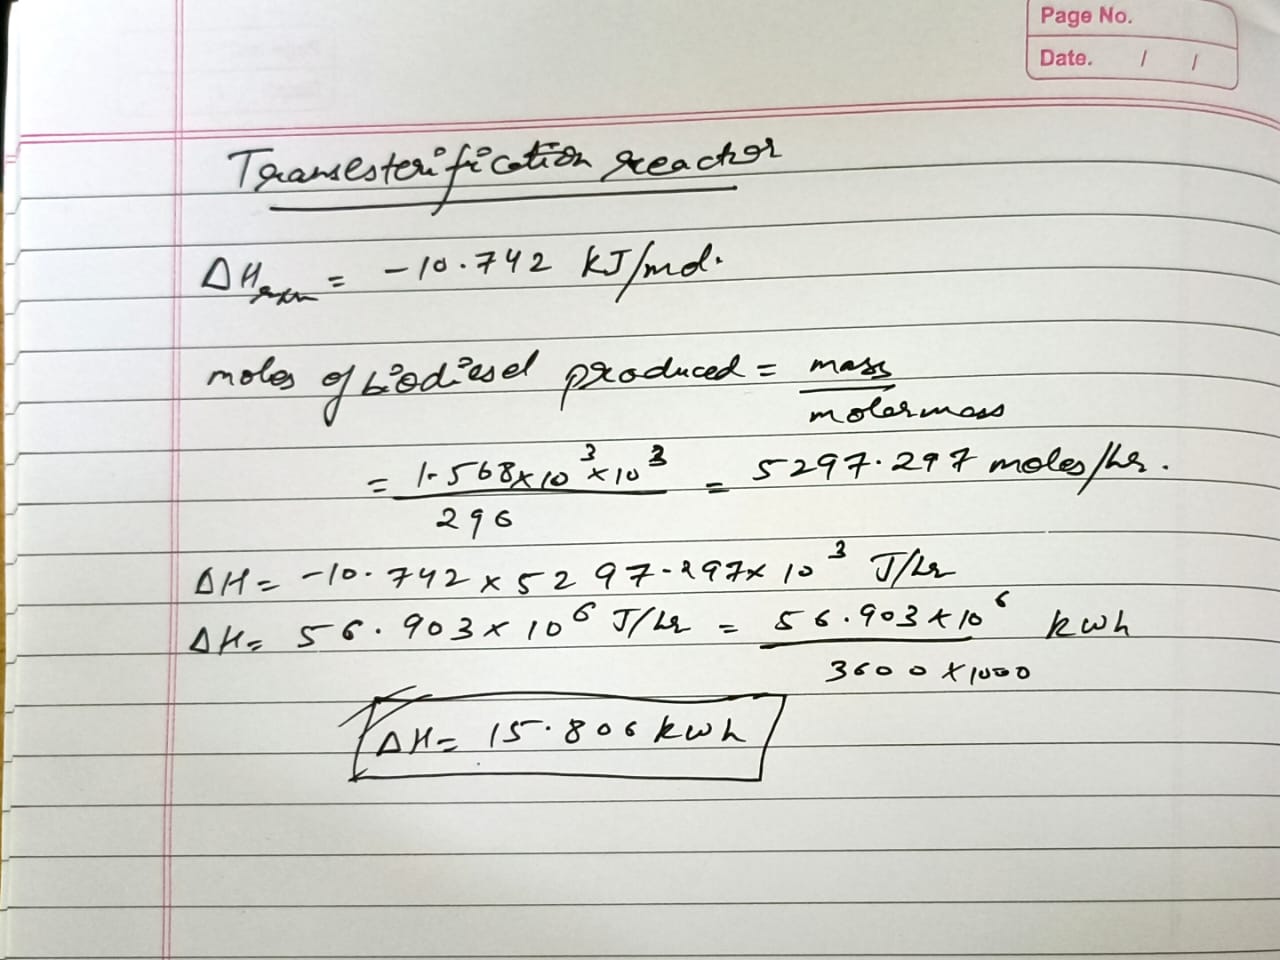 Page No.
Date. / /
Transesterification reactor
ΔHrxn = -10.742 KJ/mol.
moles of biodiesel produced = mass / molar mass
= 1.568×10³×10³ / 296 = 5297.297 moles/hr.
ΔH = -10.742 × 5297.297× 10³ J/hr
ΔH = 56.903 × 10⁶ J/hr = 56.903 × 10⁶ / 3600 × 1000 kwh
ΔH = 15.806 kwh